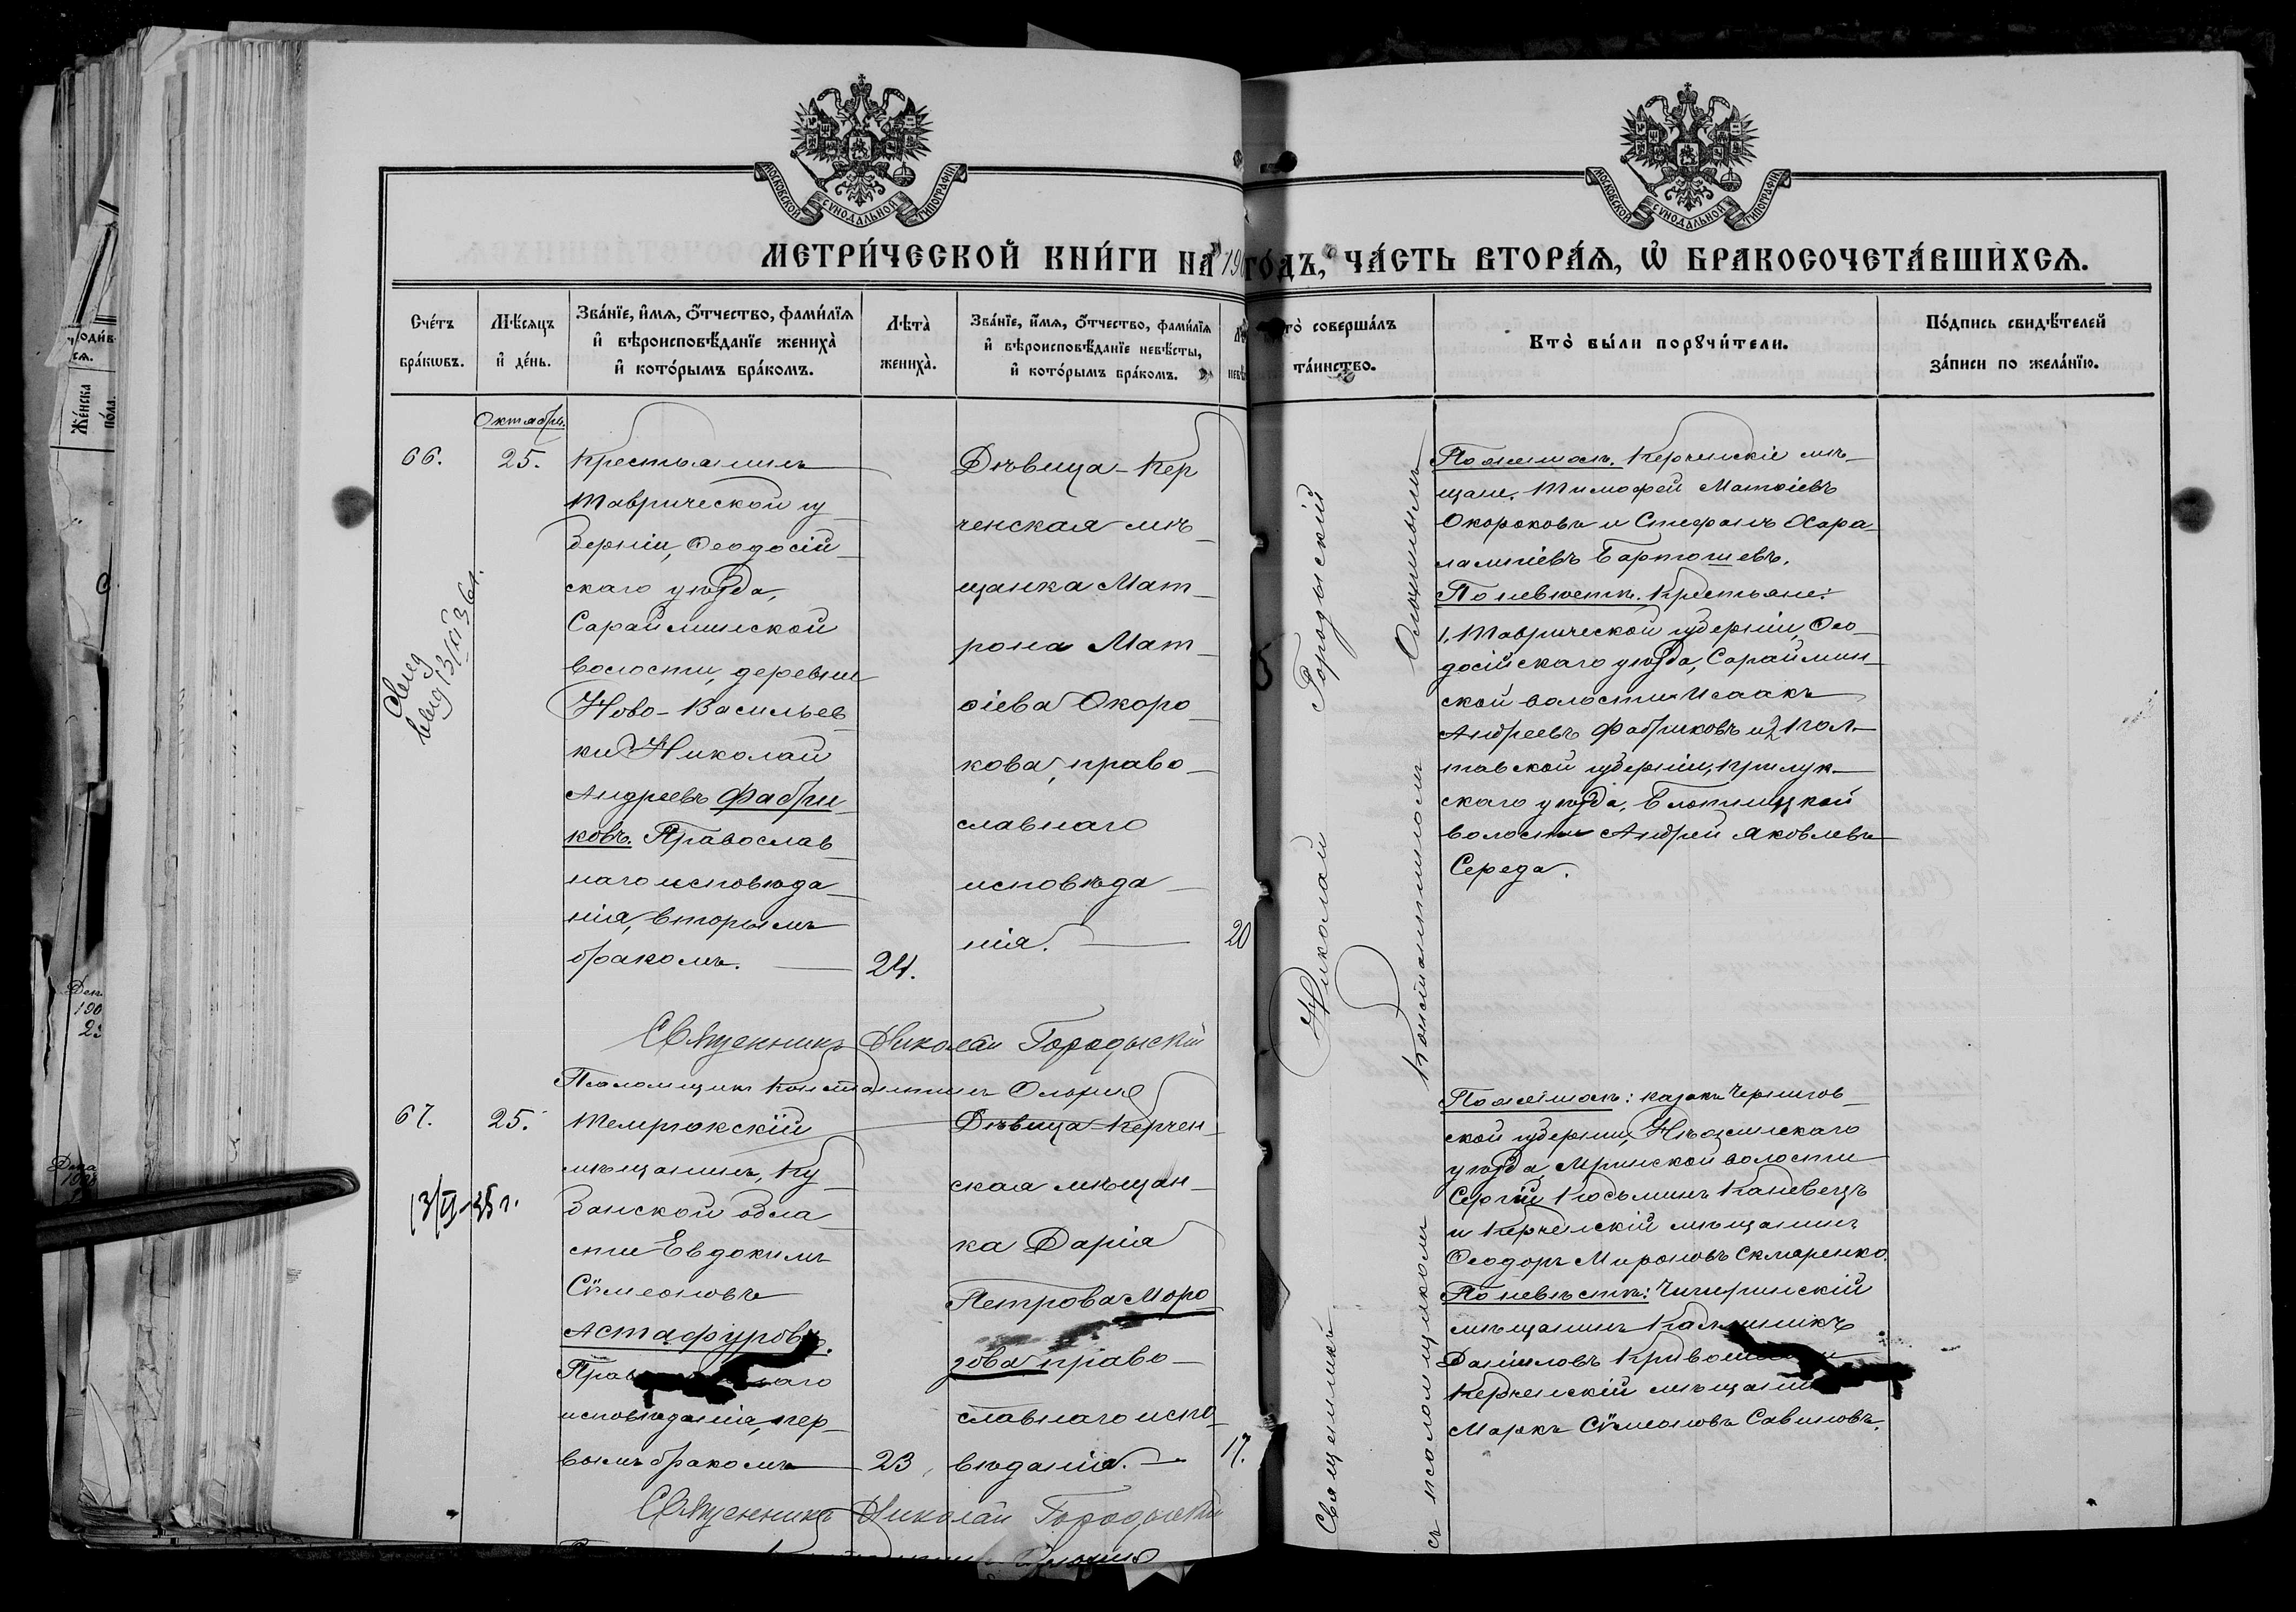 МОСКОВСКОЙ СУНОДАЛЬНОЙ ТИПОГРАФІИ
МОСКОВСКОЙ СУНОДАЛЬНОЙ ТИПОГРАФІИ
МЕТРИ́ЧЕСКОЙ КНИ́ГИ НА 190 ГО́ДЪ, ЧА́СТЬ ВТОРА́Я, Ѡ БРАКОСОЧЕТА́ВШИХСЯ.
Сче́тъ бра́кѡвъ.
Мѣ́сяцъ и де́нь.
Зва́нїе, и́мя, о́тчество, фами́лїя
и вѣроисповѣ́данїе жениха̀
и кото́рымъ бра́комъ.
Лѣта̀ жениха̀.
Зва́нїе, и́мя, о́тчество, фами́лїя
и вѣроисповѣ́данїе невѣ́сты,
и кото́рымъ бра́комъ.
то̀ соверша́лъ
та́инство.
Кто̀ бы́ли порꙋчи́тели.
По́дпись свидѣ́телей
за́писи по жела́нїю.
Октябрь.
66.
25.
Крестьянинъ
Таврической гу-
берніи, Ѳеодосій-
скаго уѣзда,
Сарайминской
волости, деревни
Ново-Васильев-
ки Николай
Андреевъ Фабри-
ковъ. Православ-
наго исповѣда-
нія, вторымъ
бракомъ.
24.
Дѣвица-Кер
ченская мѣ-
щанка Мат-
рона Мат-
ѳіева Окоро-
кова, право-
славнаго
исповѣда-
нія.
20
Николай Городыскій
Константиномъ
По женихѣ. Керченскіе мѣ-
щане, Тимофей Матѳіевъ
Окороковъ и Стефанъ Хара-
лампіевъ Бартошевъ.
По невѣстѣ. Крестьяне:
1, Таврической губерніи, Ѳео-
досійскаго уѣзда, Сараймин-
ской волости Исаакъ
Андреевъ Фабриковъ и 2, Пол-
тавской губерніи, Прилук-
скаго уѣзда, волости Андрей Яковлевъ
Середа.
Священникъ Николай Городыскій
Псаломщикъ Константинъ
67.
25.
13/VI-35 г.
Темрюкскій
мѣщанинъ, Ку-
банской обла-
сти Евдокимъ
Сѵмеоновъ
Астафуровъ.
Прав наго
исповѣданія, пер-
вымъ бракомъ
23
Дѣвица-Керчен-
ская мѣщан-
ка Дарія
Петрова Моро
зова право-
славнаго испо-
вѣданія.
17.
Священникъ
съ псаломщикомъ
По женихѣ: казакъ Чернигов-
ской губерніи, Нѣжинскаго
уѣзда, Мринской волости
Сергій Косьминъ Каневецъ
и Керченскій мѣщанинъ
Ѳеодоръ Мироновъ Скляренко.
По невѣстѣ: Чигиринскій
мѣщанинъ
Даніиловъ
Керченскій мѣщанинъ
Маркъ Сѵмеоновъ Савиновъ.
Священникъ Николай Городыскій